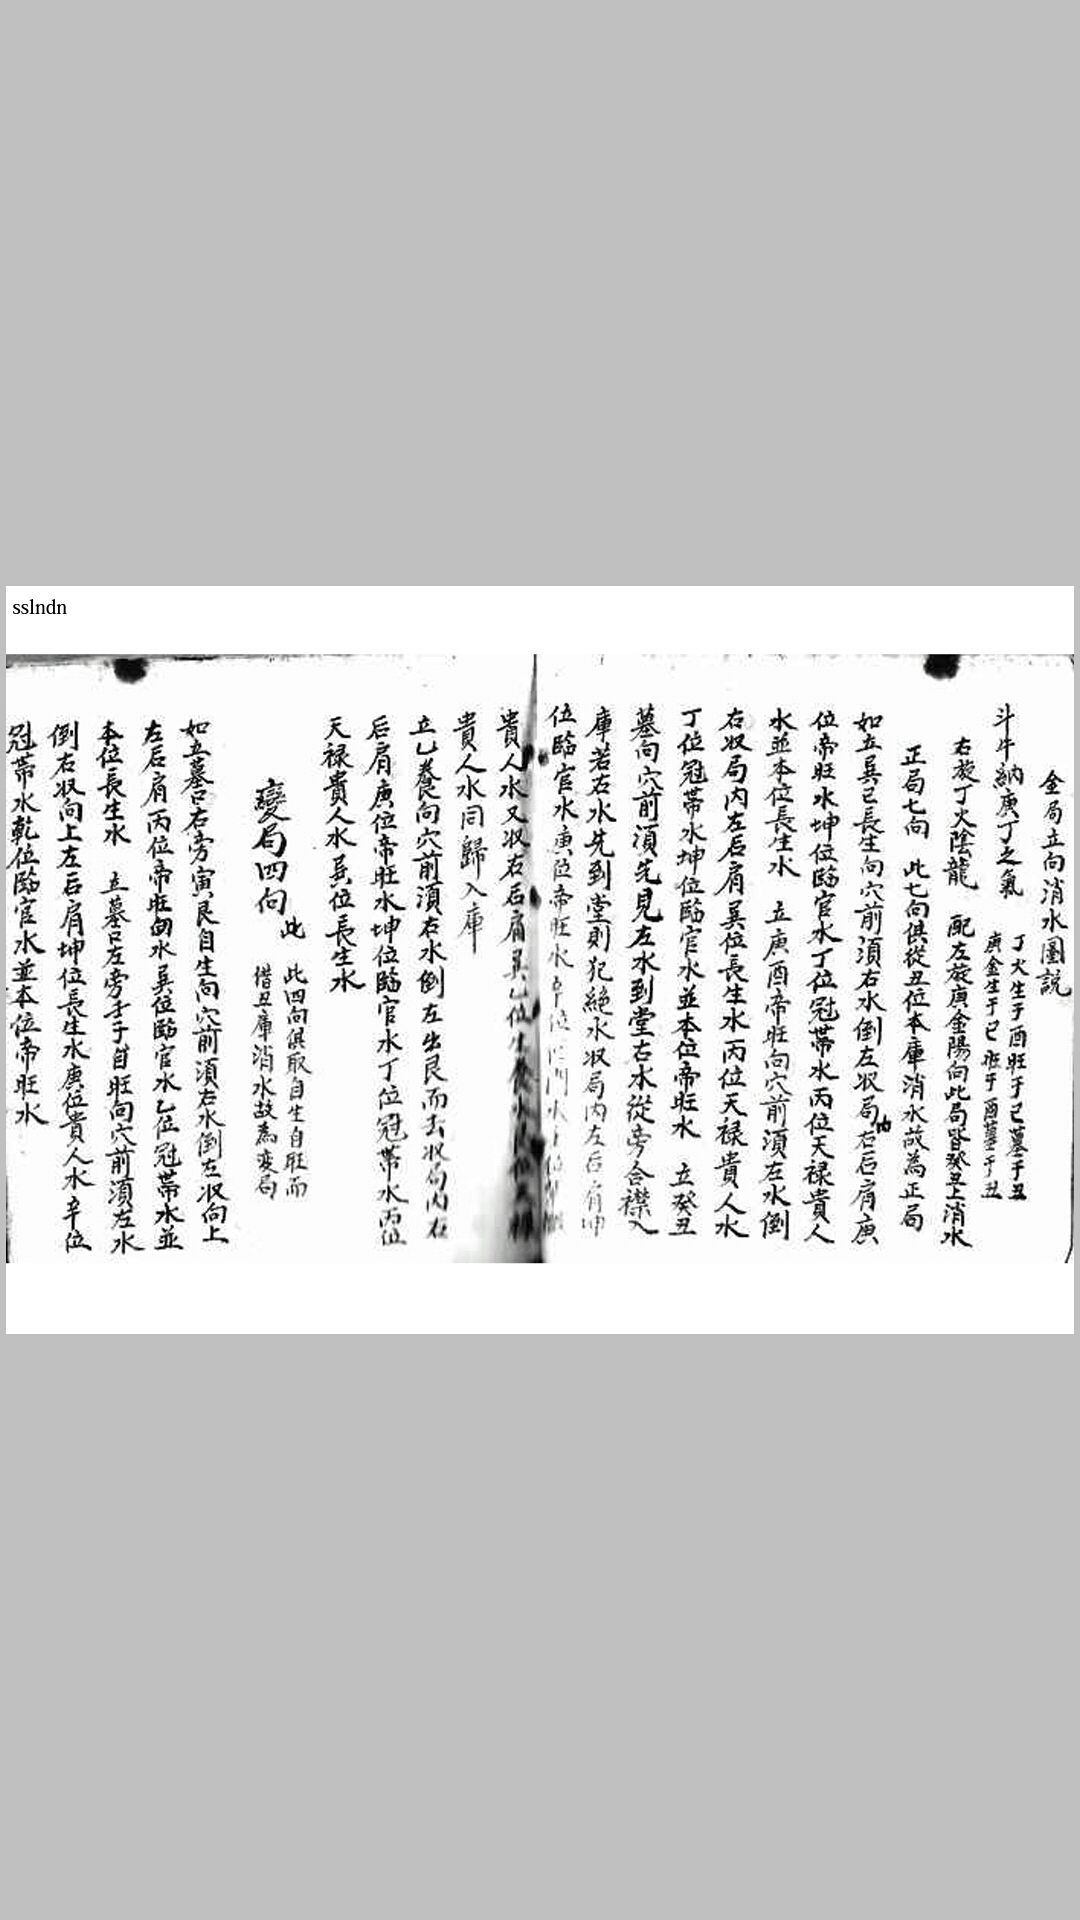 sslndn
金局立向消水圖説
斗牛納庚丁之氣
丁火生于酉旺于巳墓于丑
庚金生于巳旺于酉墓于丑
右旋丁火陰龍 配左旋庚金陽向此局皆癸丑上消水
正局七向 此七向俱從丑位本庫消水故為正局
如立巽巳長生向穴前須右水倒左収局内右后肩庚
位帝旺水坤位臨官水丁位冠帶水丙位天禄貴人
水並本位長生水 立庚酉帝旺向穴前須左水倒
右収局内左后肩巽位長生水丙位天禄貴人水
丁位冠帶水坤位臨官水並本位帝旺水 立癸丑
墓向穴前須先見左水到堂右水從旁合襟入
庫若右水先到堂則犯絶水収局内左后肩坤
位臨官水庚位帝旺水
貴人水又収右后肩巽乙位
貴人水同歸入庫
立乙養向穴前須右水倒左出艮而去収局内右
后肩庚位帝旺水坤位臨官水丁位冠帶水丙位
天禄貴人水巽位長生水
變局四向 此
此四向俱取自生自旺而
借丑庫消水故為变局
如立墓召右旁寅艮自生向穴前須右水倒左収向上
左后肩丙位帝旺水巽位臨官水乙位冠帶水並
本位長生水 立墓召左旁壬子自旺向穴前須左水
倒右収向上左后肩坤位長生水庚位貴人水辛位
冠帶水乾位臨官水並本位帝旺水